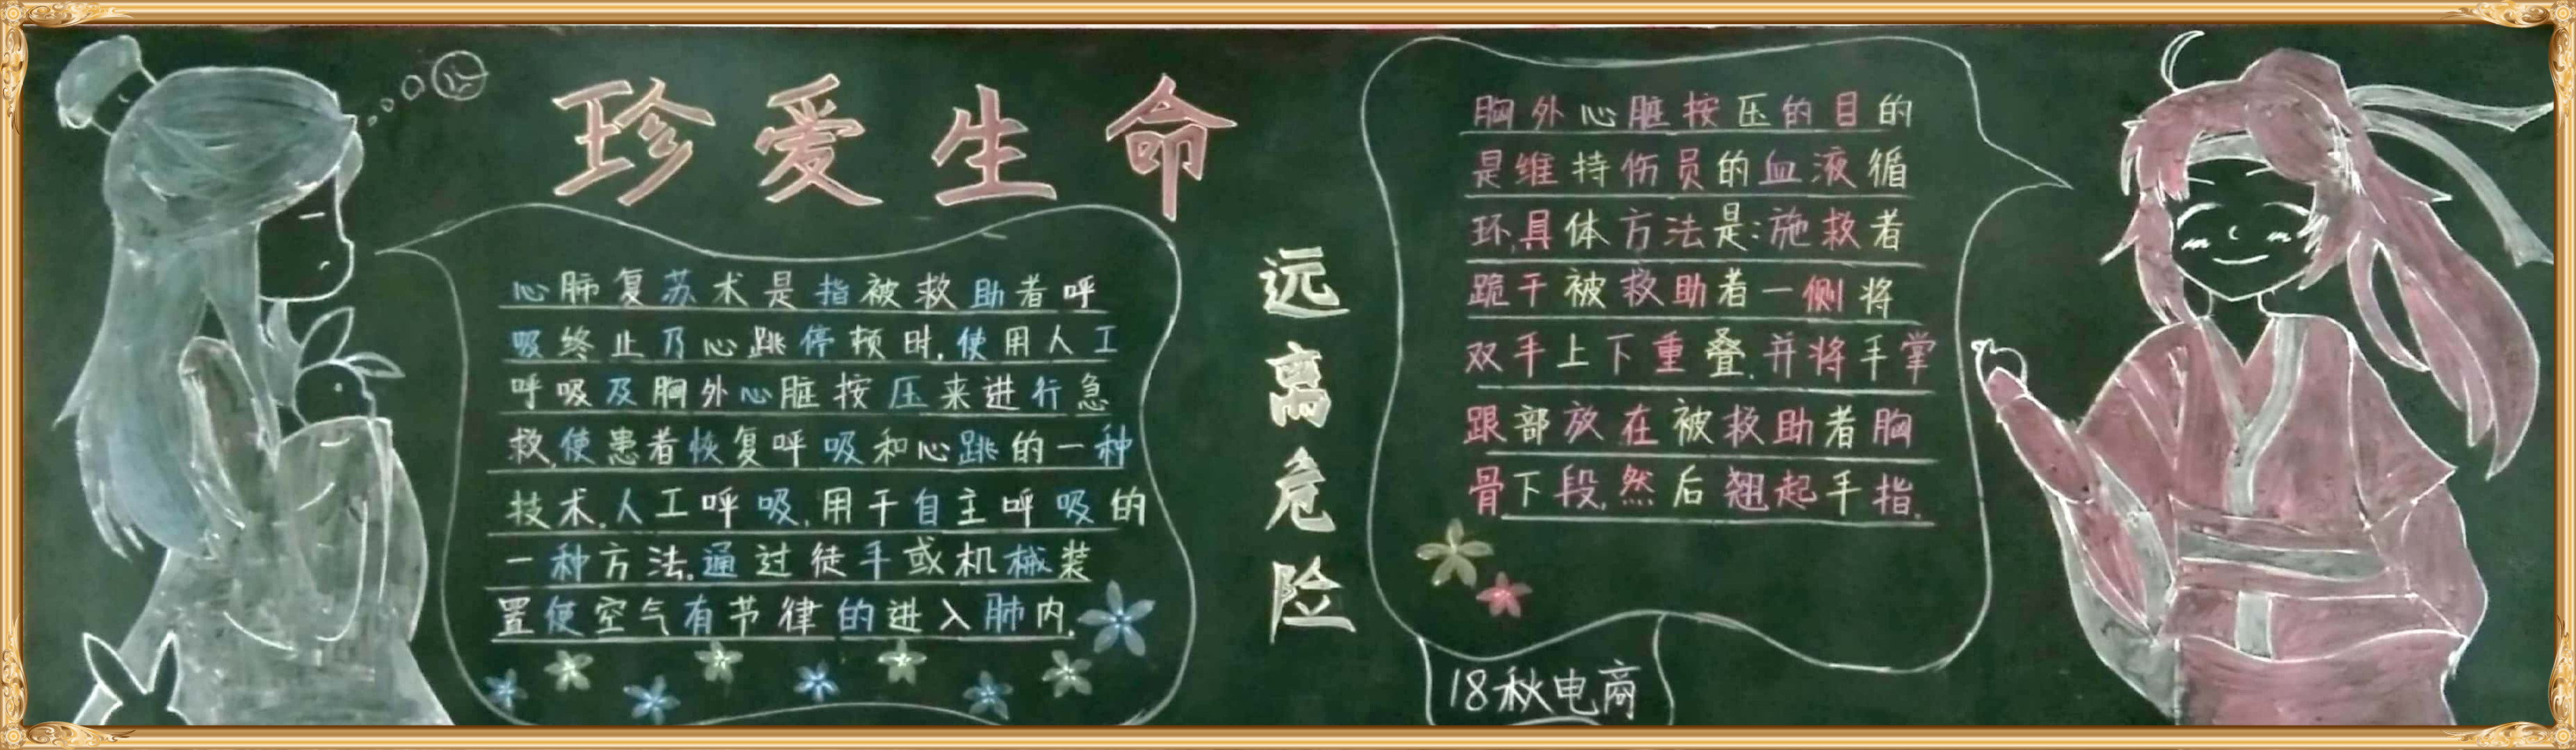 珍爱生命
远离危险
心肺复苏术是指被救助者呼
吸终止乃心跳停顿时,使用人工
呼吸及胸外心脏按压来进行急
救,使患者恢复呼吸和心跳的一种
技术.人工呼吸,用于自主呼吸的
一种方法.通过徒手或机械装
置使空气有节律的进入肺内.
胸外心脏按压的目的
是维持伤员的血液循
环,具体方法是:施救者
跪于被救助者一侧将
双手上下重叠,并将手掌
跟部放在被救助者胸
骨下段,然后翘起手指.
18秋电商